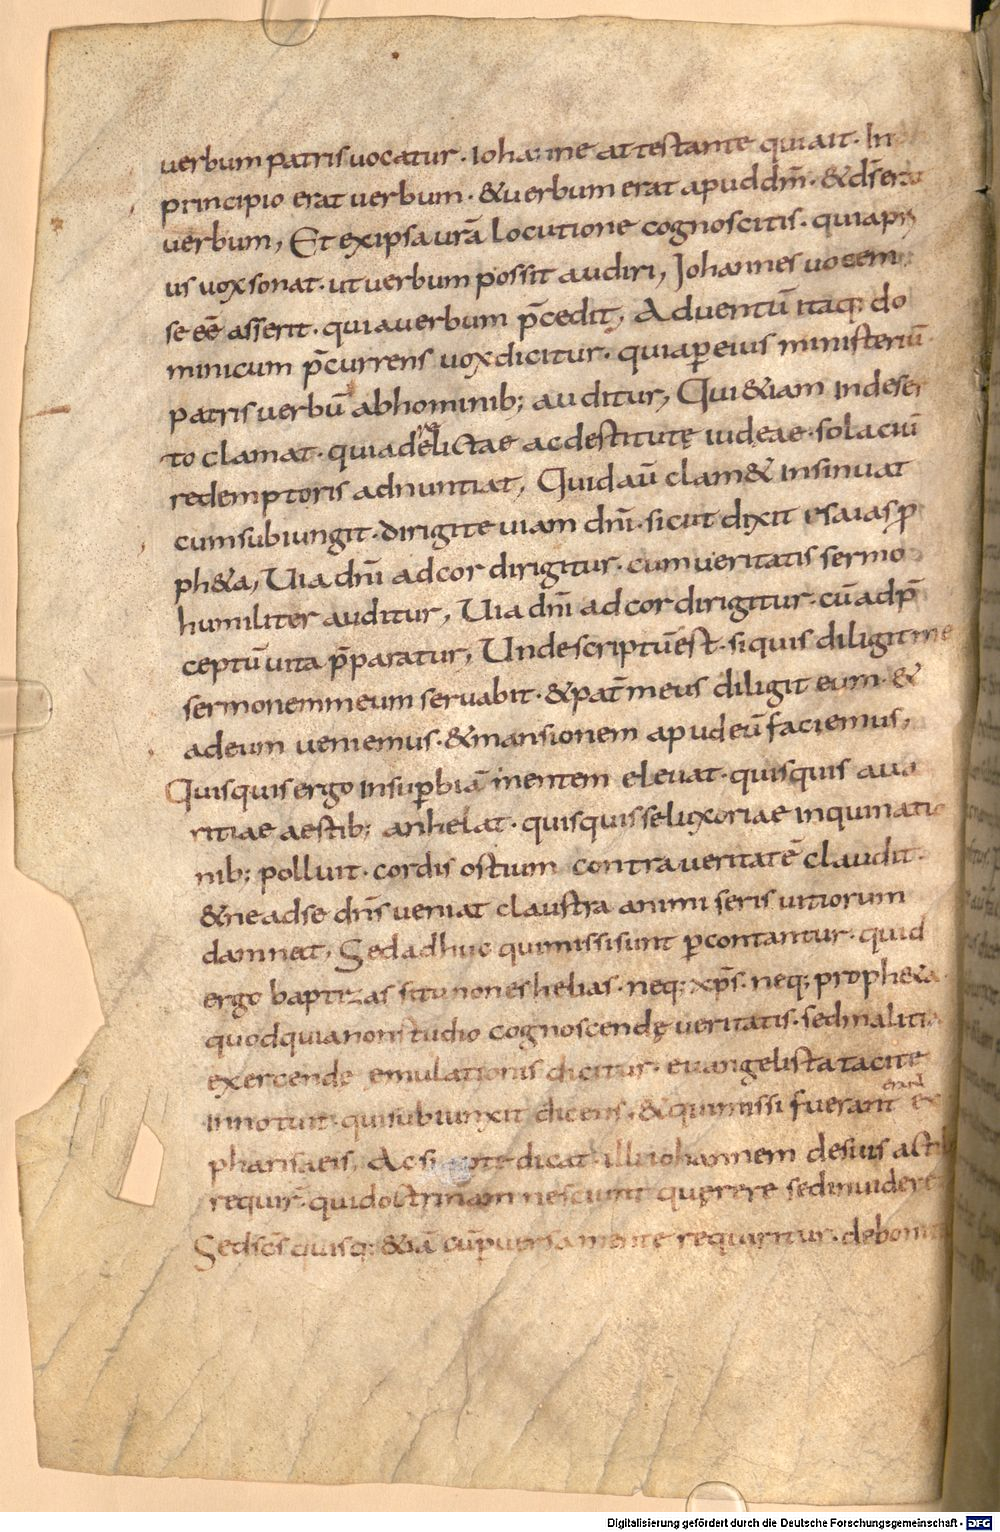 uerbum patris uocatur. Iohanne attestante qui ait. In
principio erat uerbum. & uerbum erat apud dm̄. & ds̄ erat
uerbum, Et ex ipsa ur̄a locutione cognoscitis. quia pri
us uox sonat. ut uerbum possit audiri, Iohannes uocem
se eē asserit. quia uerbum p̄cedit, Aduentū itaq; do
minicum p̄currens uox dicitur. quia per eius ministeriū
patris uerbū ab hominib; auditur, Qui &iam in deser
to clamat. quia delictae ac destitutę iudeae. solaciū
redemptoris adnuntiat, Quid aū clam& insinuat
cum subiungit. dirigite uiam dn̄i. sicut dixit esaias p̄
ph&a, Uia dn̄i ad cor dirigitur. cum ueritatis sermo
humiliter auditur, Uia dn̄i ad cor dirigitur. cū ad p̄
ceptū uita p̄paratur, Unde scriptū est. si quis diligit me
sermonem meum seruabit. & pat̄ meus diligit eum. &
ad eum ueniemus. & mansionem apud eū faciemus,
Quisquis ergo in suꝑbiā mentem eleuat. quisquis aua
ritiae aestib; anhelat. quisquis se luxoriae inquinatio
nib; polluit. cordis ostium contra ueritatē claudit.
& ne ad se dn̄s ueniat claustra animi seris uitiorum
damnat, Sed adhuc qui missi sunt ꝑcontantur. quid
ergo baptizas si tu non es helias. neq; xp̄s. neq; proph&a.
quod quia non studio cognoscendę ueritatis. sed malitia
exercende emulationis dicitur. euangelista tacite
innotuit. qui subiunxit dicens. & qui missi fuerant erant ex
pharisaeis, Ac si ap̄te dicat. illi iohannem de suis actib;
requir̄. qui doctrinam nesciunt quęrere sed inuidere
Sed sc̄s quisq; &iā cū ꝑuersa mente requiritur. de bonit